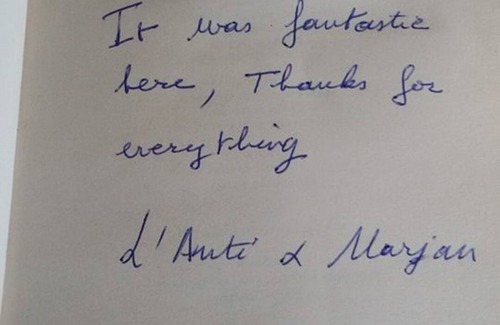 It was fantastic
here, Thanks for
everything
L'Anti & Marjan